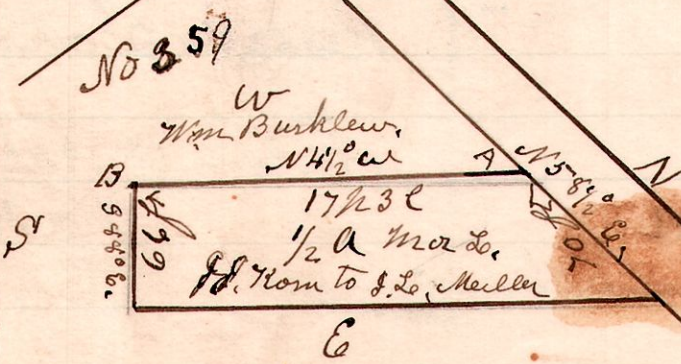 No 359
W
Wm Burklew.
N 4 1/2° W
A
N 58 1/2° E,
N
B
S
S 44° E.
39
17 P. 3 L
1/2 A Mor L.
J.J. Korn to J.L. Meiller
E